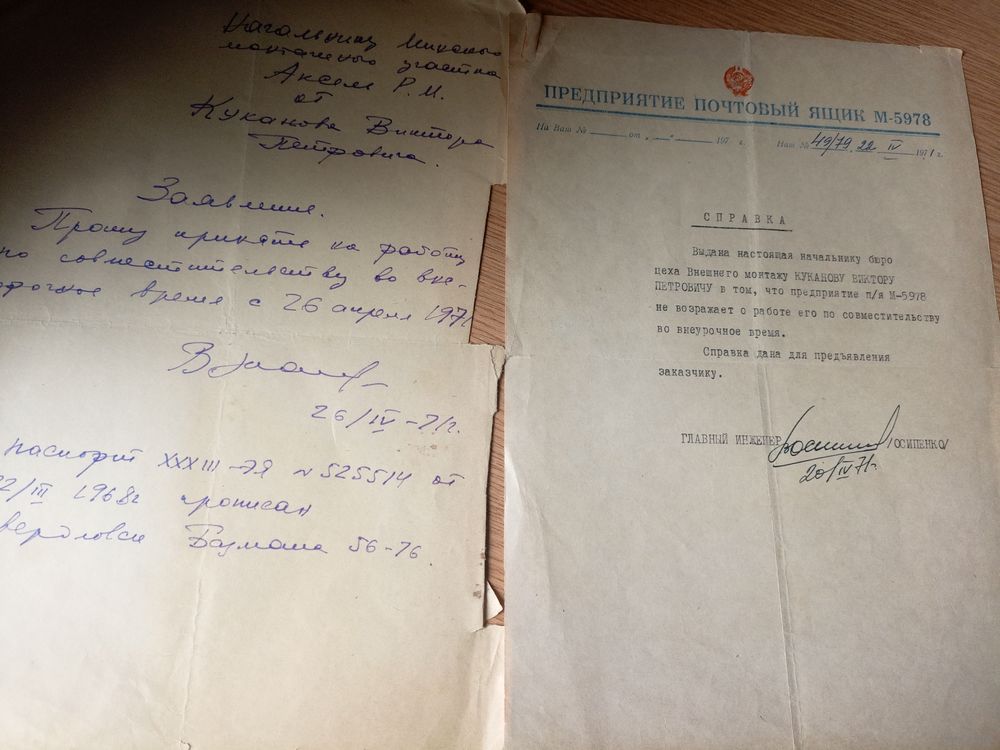 Начальнику Миньяр
монтажного участка
Аксем Р.М.
от
Куканова Виктора
Петровича.
Заявление.
Прошу принять на работу
по совместительству во вне-
рочное время с 26 апреля 1971
26/IV-71г.
паспорт XXXIII-ЭЯ № 525514 от
22/III 1968г прописан
вердловск Баумана 56-76.
ПРЕДПРИЯТИЕ ПОЧТОВЫЙ ЯЩИК М-5978
На Ваш № от „ “ 197 г. Наш № 49/79 22 IV 1971 г.
СПРАВКА
Выдана настоящая начальнику бюро
цеха Внешнего монтажу КУКАНОВУ ВИКТОРУ
ПЕТРОВИЧУ в том, что предприятие п/я М-5978
не возражает о работе его по совместительству
во внеурочное время.
Справка дана для предъявления
заказчику.
ГЛАВНЫЙ ИНЖЕНЕР /ОСИПЕНКО/
20/IV 71г